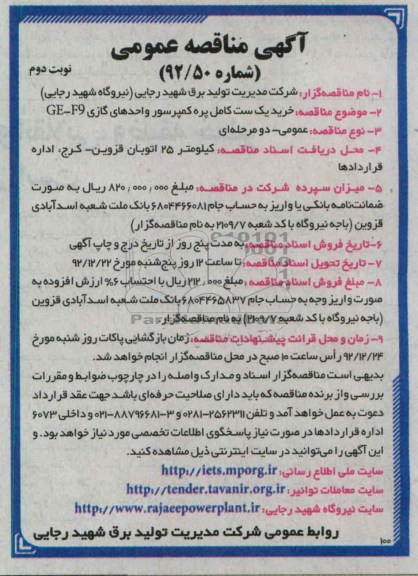 آگهی مناقصه عمومی
(شماره ۹۲/۵۰)
نوبت دوم
۱- نام مناقصه‌گزار: شرکت مدیریت تولید برق شهید رجایی (نیروگاه شهید رجایی)
۲- موضوع مناقصه: خرید یک ست کامل پره کمپرسور واحدهای گازی GE-F9
۳- نوع مناقصه: عمومی- دو مرحله‌ای
۴- محل دریافت اسناد مناقصه: کیلومتر ۲۵ اتوبان قزوین- کرج، اداره
قراردادها
۵- میزان سپرده شرکت در مناقصه: مبلغ ۸۲۰/۰۰۰/۰۰۰ ریال به صورت
ضمانت‌نامه بانکی یا واریز به حساب جام ۶۸۰۴۴۶۶۰۸۱ بانک ملت شعبه اسدآبادی
قزوین (باجه نیروگاه با کد شعبه ۲۱۰۹/۷ به نام مناقصه‌گزار)
۶- تاریخ فروش اسناد مناقصه: به مدت پنج روز از تاریخ درج و چاپ آگهی
۷- تاریخ تحویل اسناد مناقصه: تا ساعت ۱۲ روز پنج‌شنبه مورخ ۹۲/۱۲/۲۲
۸- مبلغ فروش اسناد مناقصه: مبلغ ۲۱۲/۰۰۰ ریال با احتساب ۶% ارزش افزوده به
صورت واریز وجه به حساب جام ۶۸۰۴۴۶۵۸۳۷ بانک ملت شعبه اسدآبادی قزوین
(باجه نیروگاه با کد شعبه ۲۱۰۹/۷) به نام مناقصه‌گزار
۹- زمان و محل قرائت پیشنهادات مناقصه: زمان بازگشایی پاکات روز شنبه مورخ
۹۲/۱۲/۲۴ رأس ساعت ۱۰ صبح در محل مناقصه‌گزار انجام خواهد شد.
بدیهی است مناقصه‌گزار اسناد و مدارک واصله را در چارچوب ضوابط و مقررات
بررسی و از برنده مناقصه که باید دارای صلاحیت حرفه‌ای باشد جهت عقد قرارداد
دعوت به عمل خواهد آمد و تلفن ۲۵۶۲۳۱۱-۰۲۸۱ و ۳-۸۸۷۹۶۶۸۱-۰۲۱ و داخلی ۶۰۷۳
اداره قراردادها در صورت نیاز پاسخگوی اطلاعات تخصصی مورد نیاز خواهد بود. و
این آگهی را می‌توانید در سایت اینترنتی ذیل مشاهده کنید.
سایت ملی اطلاع رسانی: http://iets.mporg.ir
سایت معاملات توانیر: http://tender.tavanir.org.ir
سایت نیروگاه شهید رجایی: http://www.rajaeepowerplant.ir
روابط عمومی شرکت مدیریت تولید برق شهید رجایی
۱۰۰